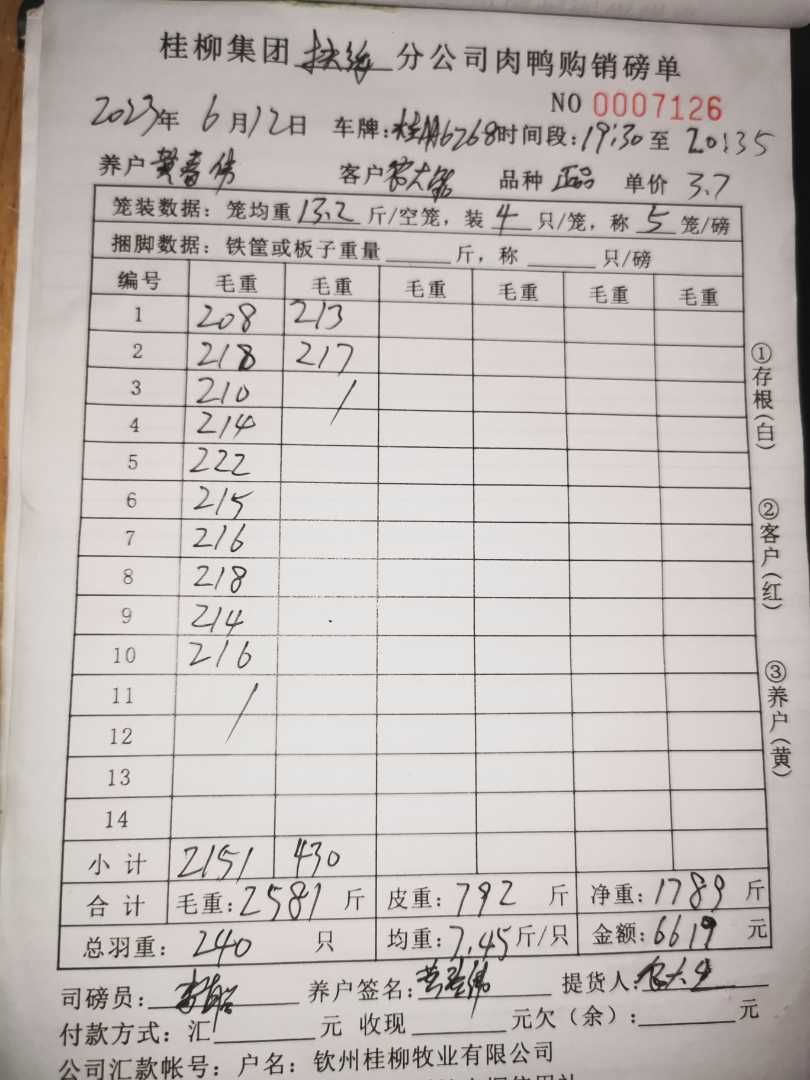 桂柳集团 扶绥 分公司肉鸭购销磅单
NO 0007126
2023年 6月12日 车牌: 6268 时间段: 19:30 至 20:35
养户 黄春伟 客户 品种 正品 单价 3.7
笼装数据: 笼均重 13.2 斤/空笼, 装 4 只/笼, 称 5 笼/磅
捆脚数据: 铁筐或板子重量 斤, 称 只/磅
编号 毛重 毛重 毛重 毛重 毛重 毛重
1 208 213
2 218 217
3 210 /
4 214
5 222
6 215
7 216
8 218
9 214
10 216
11 /
12
13
14
小计 2151 430
合计 毛重: 2581 斤 皮重: 792 斤 净重: 1789 斤
总羽重: 240 只 均重: 7.45 斤/只 金额: 6619 元
司磅员: 养户签名: 黄春伟 提货人:
付款方式: 汇 元 收现 元欠(余): 元
公司汇款帐号: 户名: 钦州桂柳牧业有限公司
①存根(白)
②客户(红)
③养户(黄)